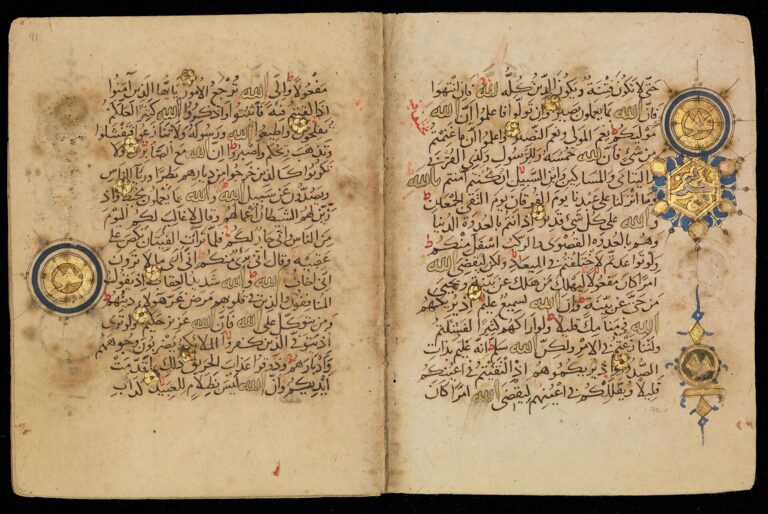 حتى لا تكون فتنة ويكون الدين كله لله فان انتهوا
فان الله بما يعملون بصير وان تولوا فاعلموا ان الله
موليكم نعم المولى ونعم النصير واعلموا انما غنمتم
من شيء فان لله خمسه وللرسول ولذي القربى
واليتامى والمساكين وابن السبيل ان كنتم امنتم بالله
وما انزلنا على عبدنا يوم الفرقان يوم التقى الجمعان
والله على كل شيء قدير اذ انتم بالعدوة الدنيا
وهم بالعدوة القصوى والركب اسفل منكم
ولو تواعدتم لاختلفتم في الميعاد ولكن ليقضي الله
امرا كان مفعولا ليهلك من هلك عن بينة ويحيى
من حي عن بينة وان الله لسميع عليم اذ يريكهم
الله في منامك قليلا ولو اراكهم كثيرا لفشلتم
ولتنازعتم في الامر ولكن الله سلم انه عليم بذات
الصدور واذ يريكموهم اذ التقيتم في اعينكم
قليلا ويقللكم في اعينهم ليقضي الله امرا كان
91
مفعولا والى الله ترجع الامور يا ايها الذين امنوا
اذا لقيتم فئة فاثبتوا واذكروا الله كثيرا لعلكم
تفلحون واطيعوا الله ورسوله ولا تنازعوا فتفشلوا
وتذهب ريحكم واصبروا ان الله مع الصابرين ولا
تكونوا كالذين خرجوا من ديارهم بطرا ورئا الناس
ويصدون عن سبيل الله والله بما يعملون محيط واذ
زين لهم الشيطان اعمالهم وقال لا غالب لكم اليوم
من الناس واني جار لكم فلما تراءت الفئتان نكص على
عقبيه وقال اني بريء منكم اني ارى ما لا ترون
اني اخاف الله والله شديد العقاب اذ يقول
المنافقون والذين في قلوبهم مرض غر هولا دينهم
ومن يتوكل على الله فان الله عزيز حكيم ولو ترى
اذ يتوفى الذين كفروا الملائكة يضربون وجوههم
وادبارهم وذوقوا عذاب الحريق ذلك بما قدمت
ايديكم وان الله ليس بظلام للعبيد كداب